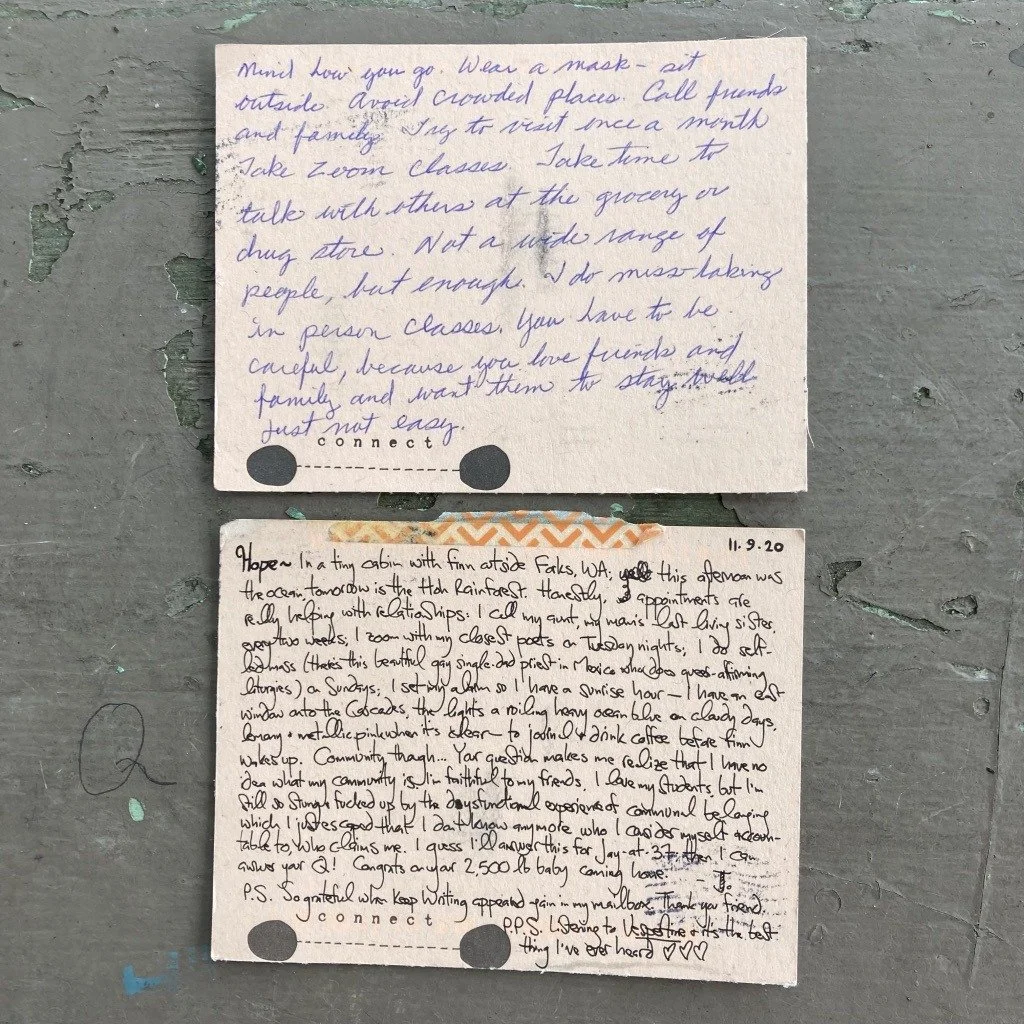 Mind how you go. Wear a mask - sit
outside. Avoid crowded places. Call friends
and family. Try to visit once a month
Take Zoom classes. Take time to
talk with others at the grocery or
drug store. Not a wide range of
people, but enough. I do miss taking
in person classes. You have to be
careful, because you love friends and
family and want them to stay well
Just not easy.
connect
11.9.20
Hope~ In a tiny cabin with Finn outside Forks, WA; this afternoon was
the ocean, tomorrow is the Hoh Rainforest. Honestly, appointments are
really helping with relationships: I call my aunt, my mom's last living sister,
every two weeks; I zoom with my closest poets on Tuesday nights; I do self-
led mass (there's this beautiful gay single-dad priest in Mexico who does queer-affirming
liturgies) on Sundays; I set my alarm so I have a sunrise hour — I have an east
window onto the Cascades, the lights a roiling heavy ocean blue on cloudy days,
lemony + metallic pink when it's clear — to journal & drink coffee before Finn
wakes up. Community though... Your question makes me realize that I have no
idea what my community is. I'm faithful to my friends, I love my students, but I'm
still so stung & fucked up by the dysfunctional experience of communal belonging
which I just escaped that I don't know anymore who I consider myself accoun-
table to, who claims me. I guess I'll answer this for Jay-at-37, then I can
answer your Q! Congrats on your 2,500 lb baby coming home. J.
P.S. So grateful when Keep Writing appeared again in my mailbox. Thank you friend.
connect
P.P.S. Listening to Vespertine & it's the best
thing I've ever heard ♡♡♡
Q